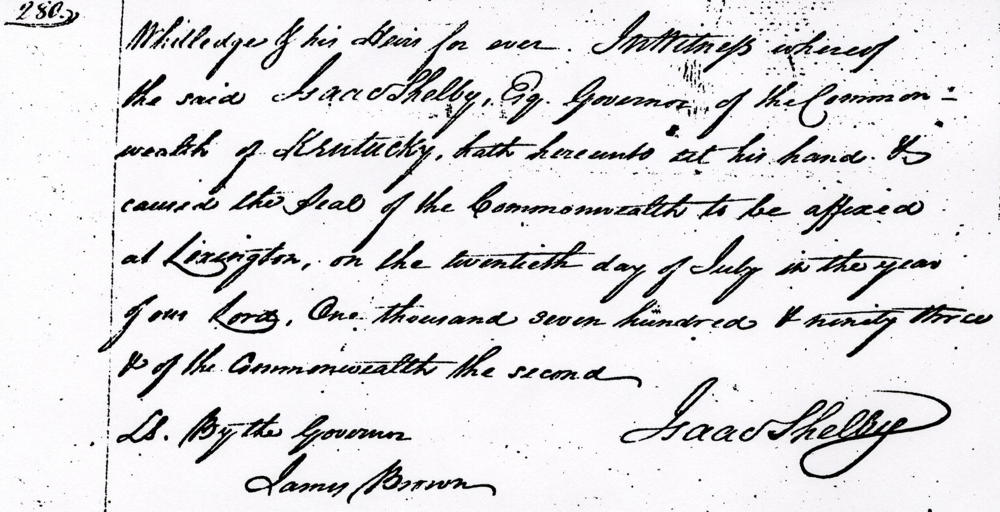 280.
Whilledge & his Heirs for ever. In Witness whereof
the said Isaac Shelby, Esq. Governor of the Common-
wealth of Kentucky, hath hereunto set his hand &
caused the Seal of the Commonwealth to be affixed
at Lexington, on the twentieth day of July in the year
of our Lord, One thousand seven hundred & ninety three
& of the Commonwealth the second
LS. By the Governor
Isaac Shelby
James Brown